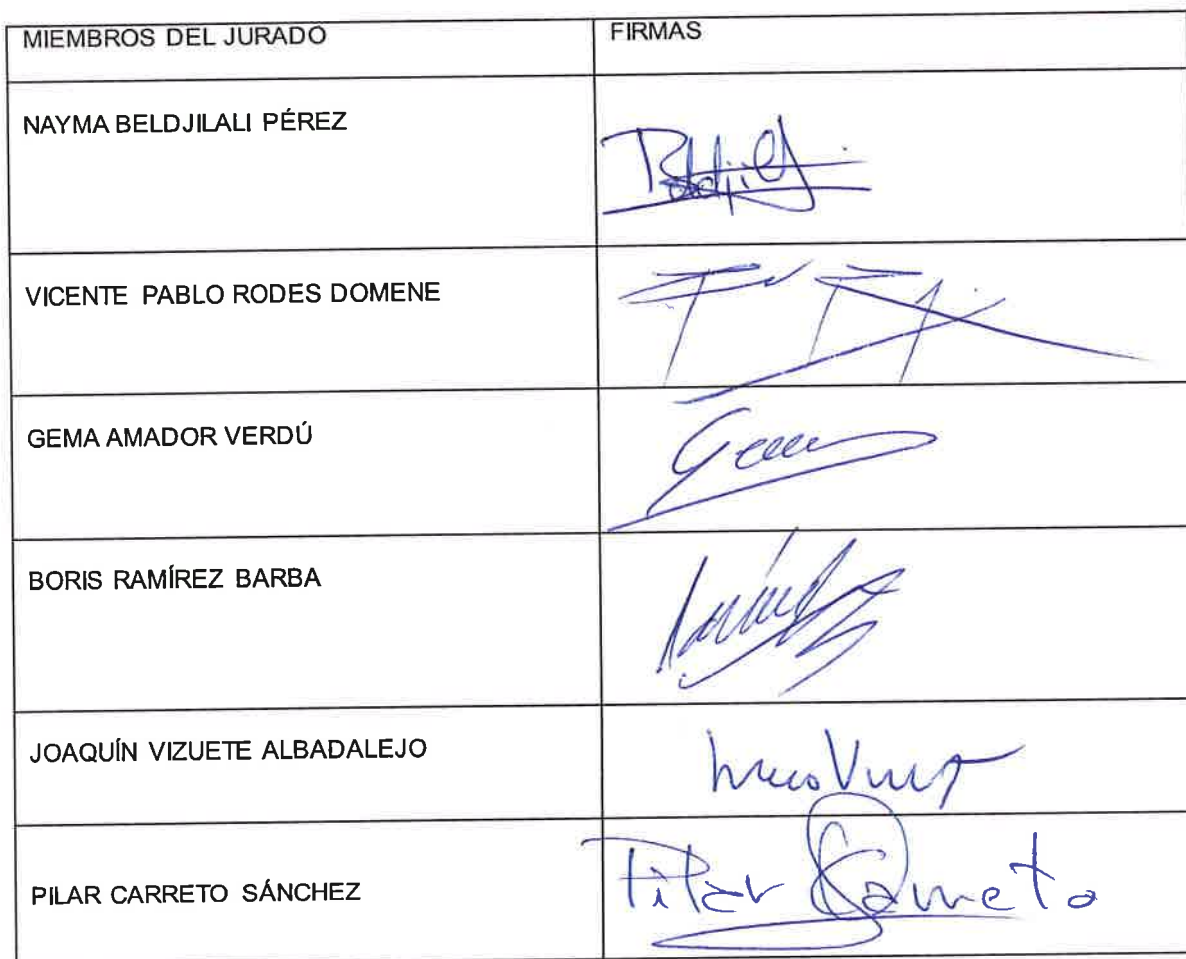 MIEMBROS DEL JURADO FIRMAS
NAYMA BELDJILALI PÉREZ
VICENTE PABLO RODES DOMENE
GEMA AMADOR VERDÚ
BORIS RAMÍREZ BARBA
JOAQUÍN VIZUETE ALBADALEJO
PILAR CARRETO SÁNCHEZ Pilar Carreto